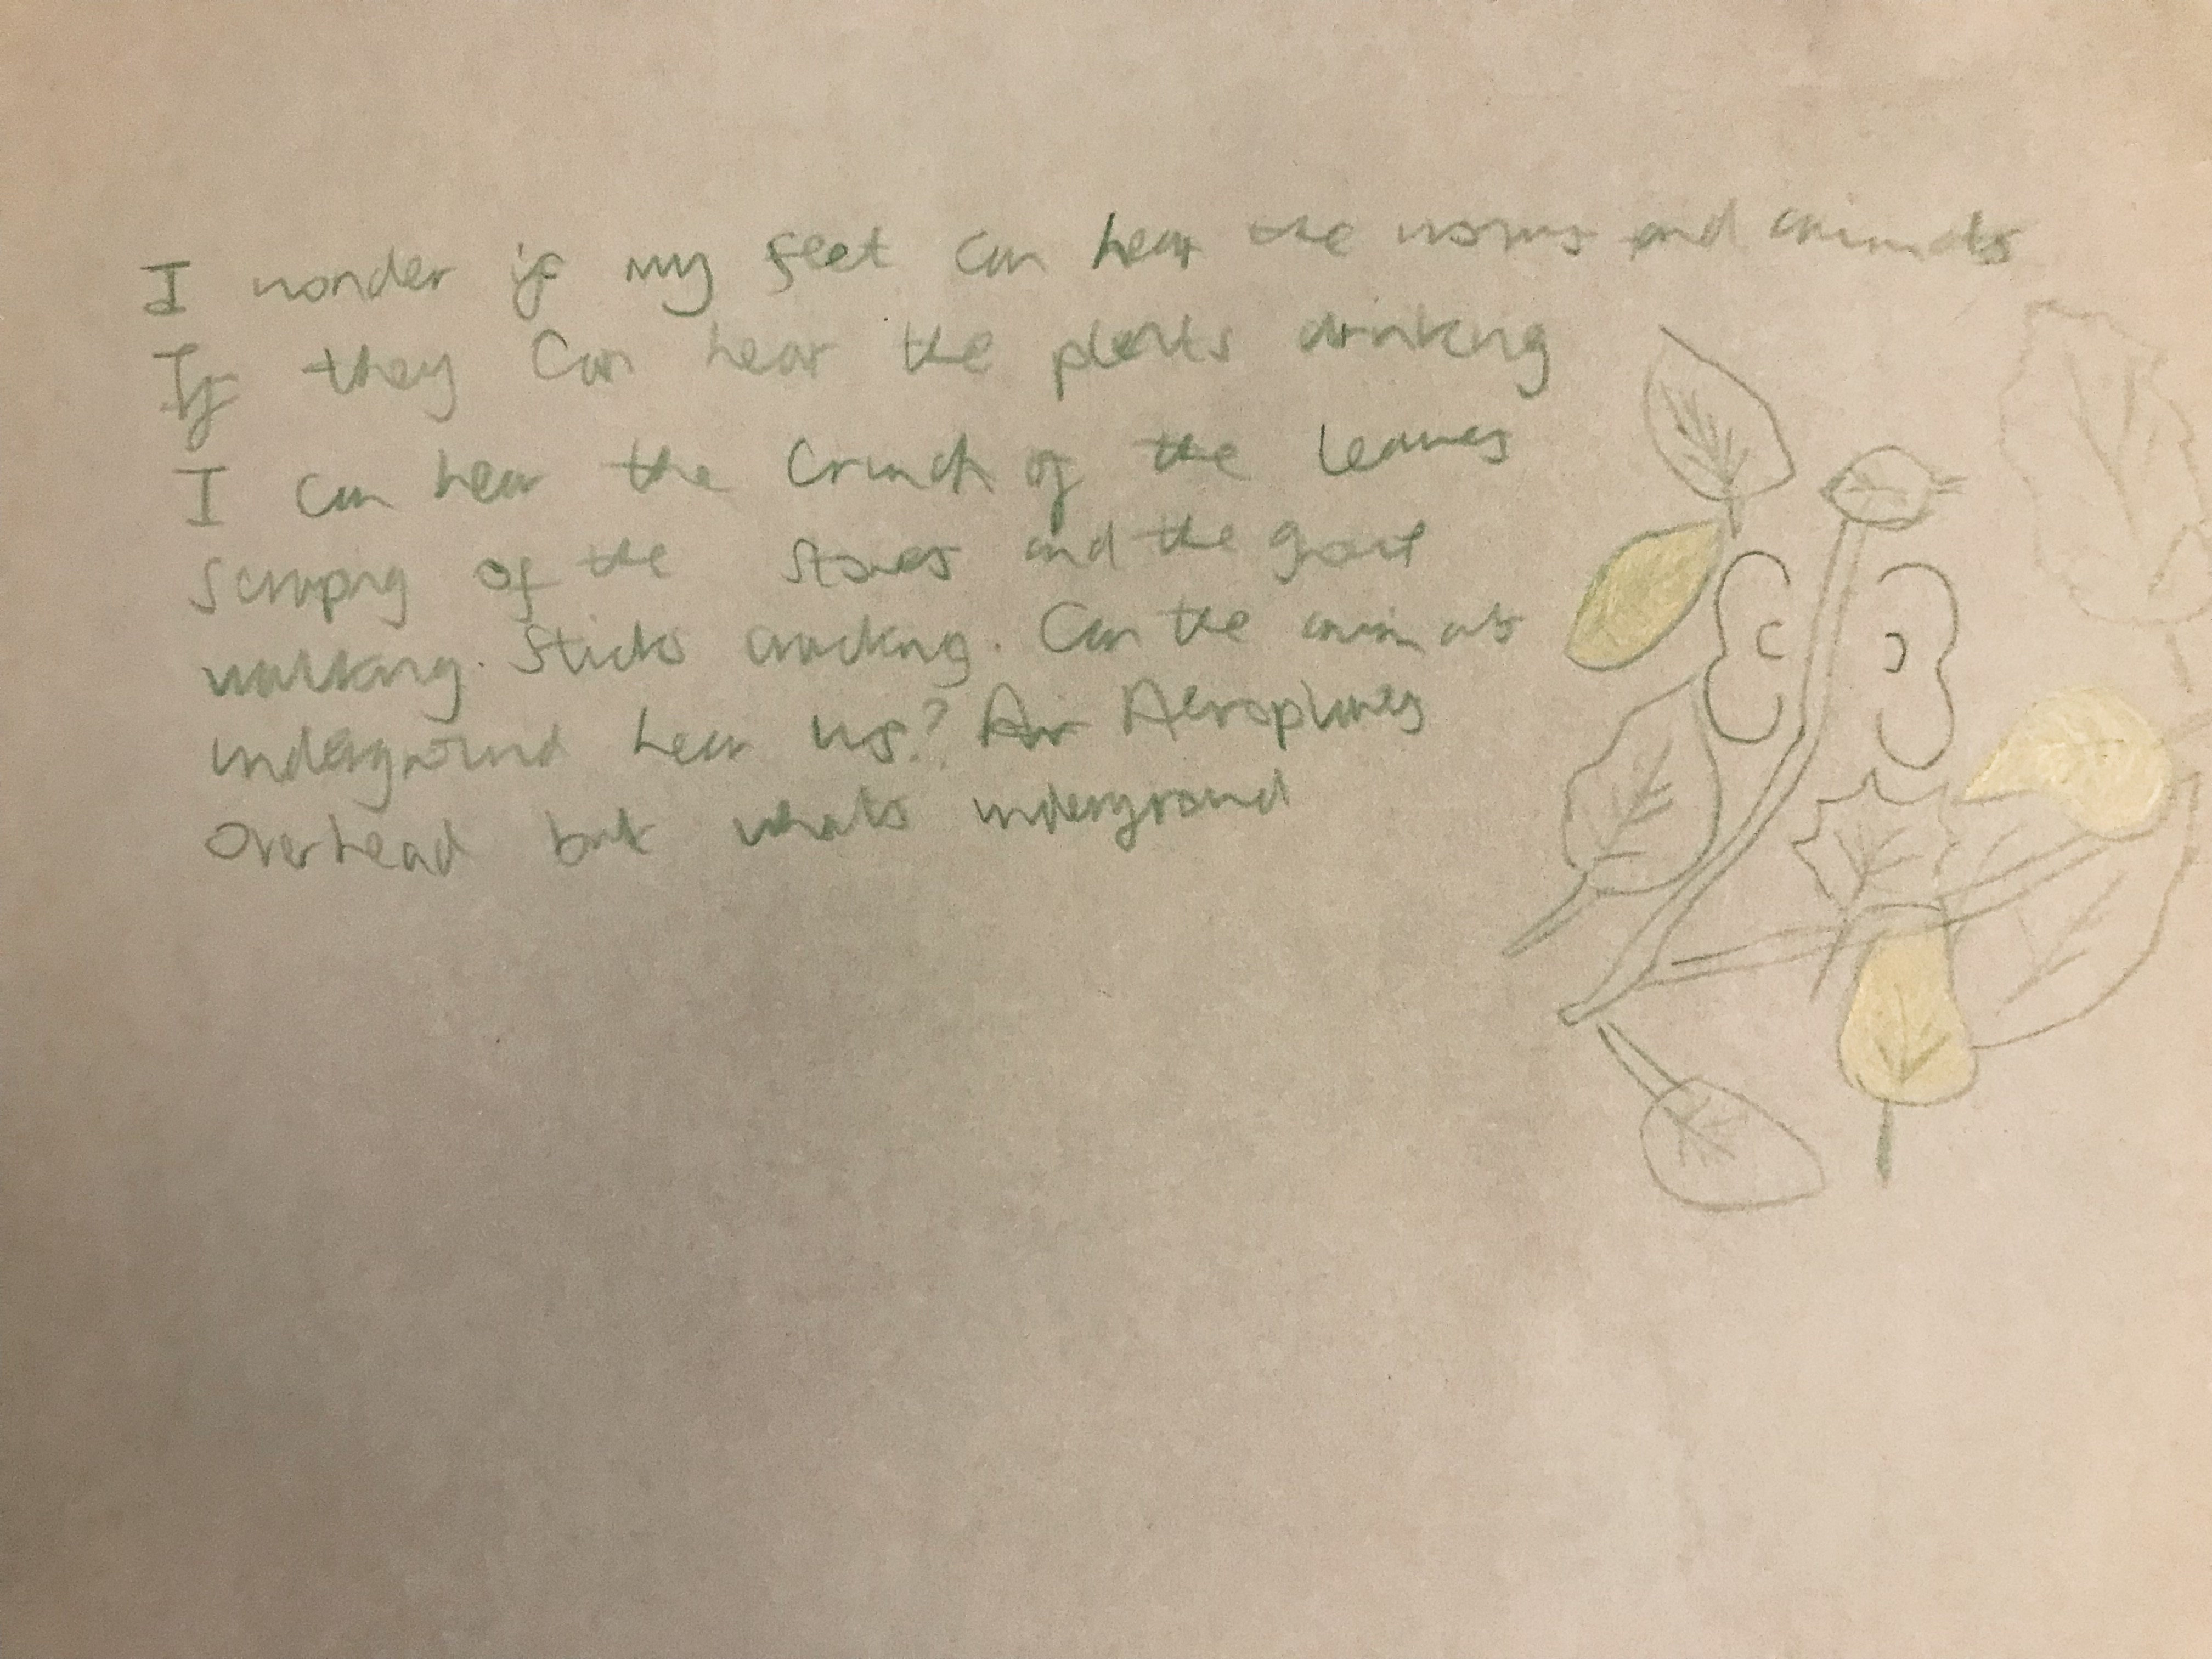 I wonder if my feet can hear the worms and animals
If they can hear the plants drinking
I can hear the crunch of the leaves
Scraping of the stones and the
walking. Sticks cracking. Can the animals
underground hear us? Air Aeroplanes
Overhead but whats underground